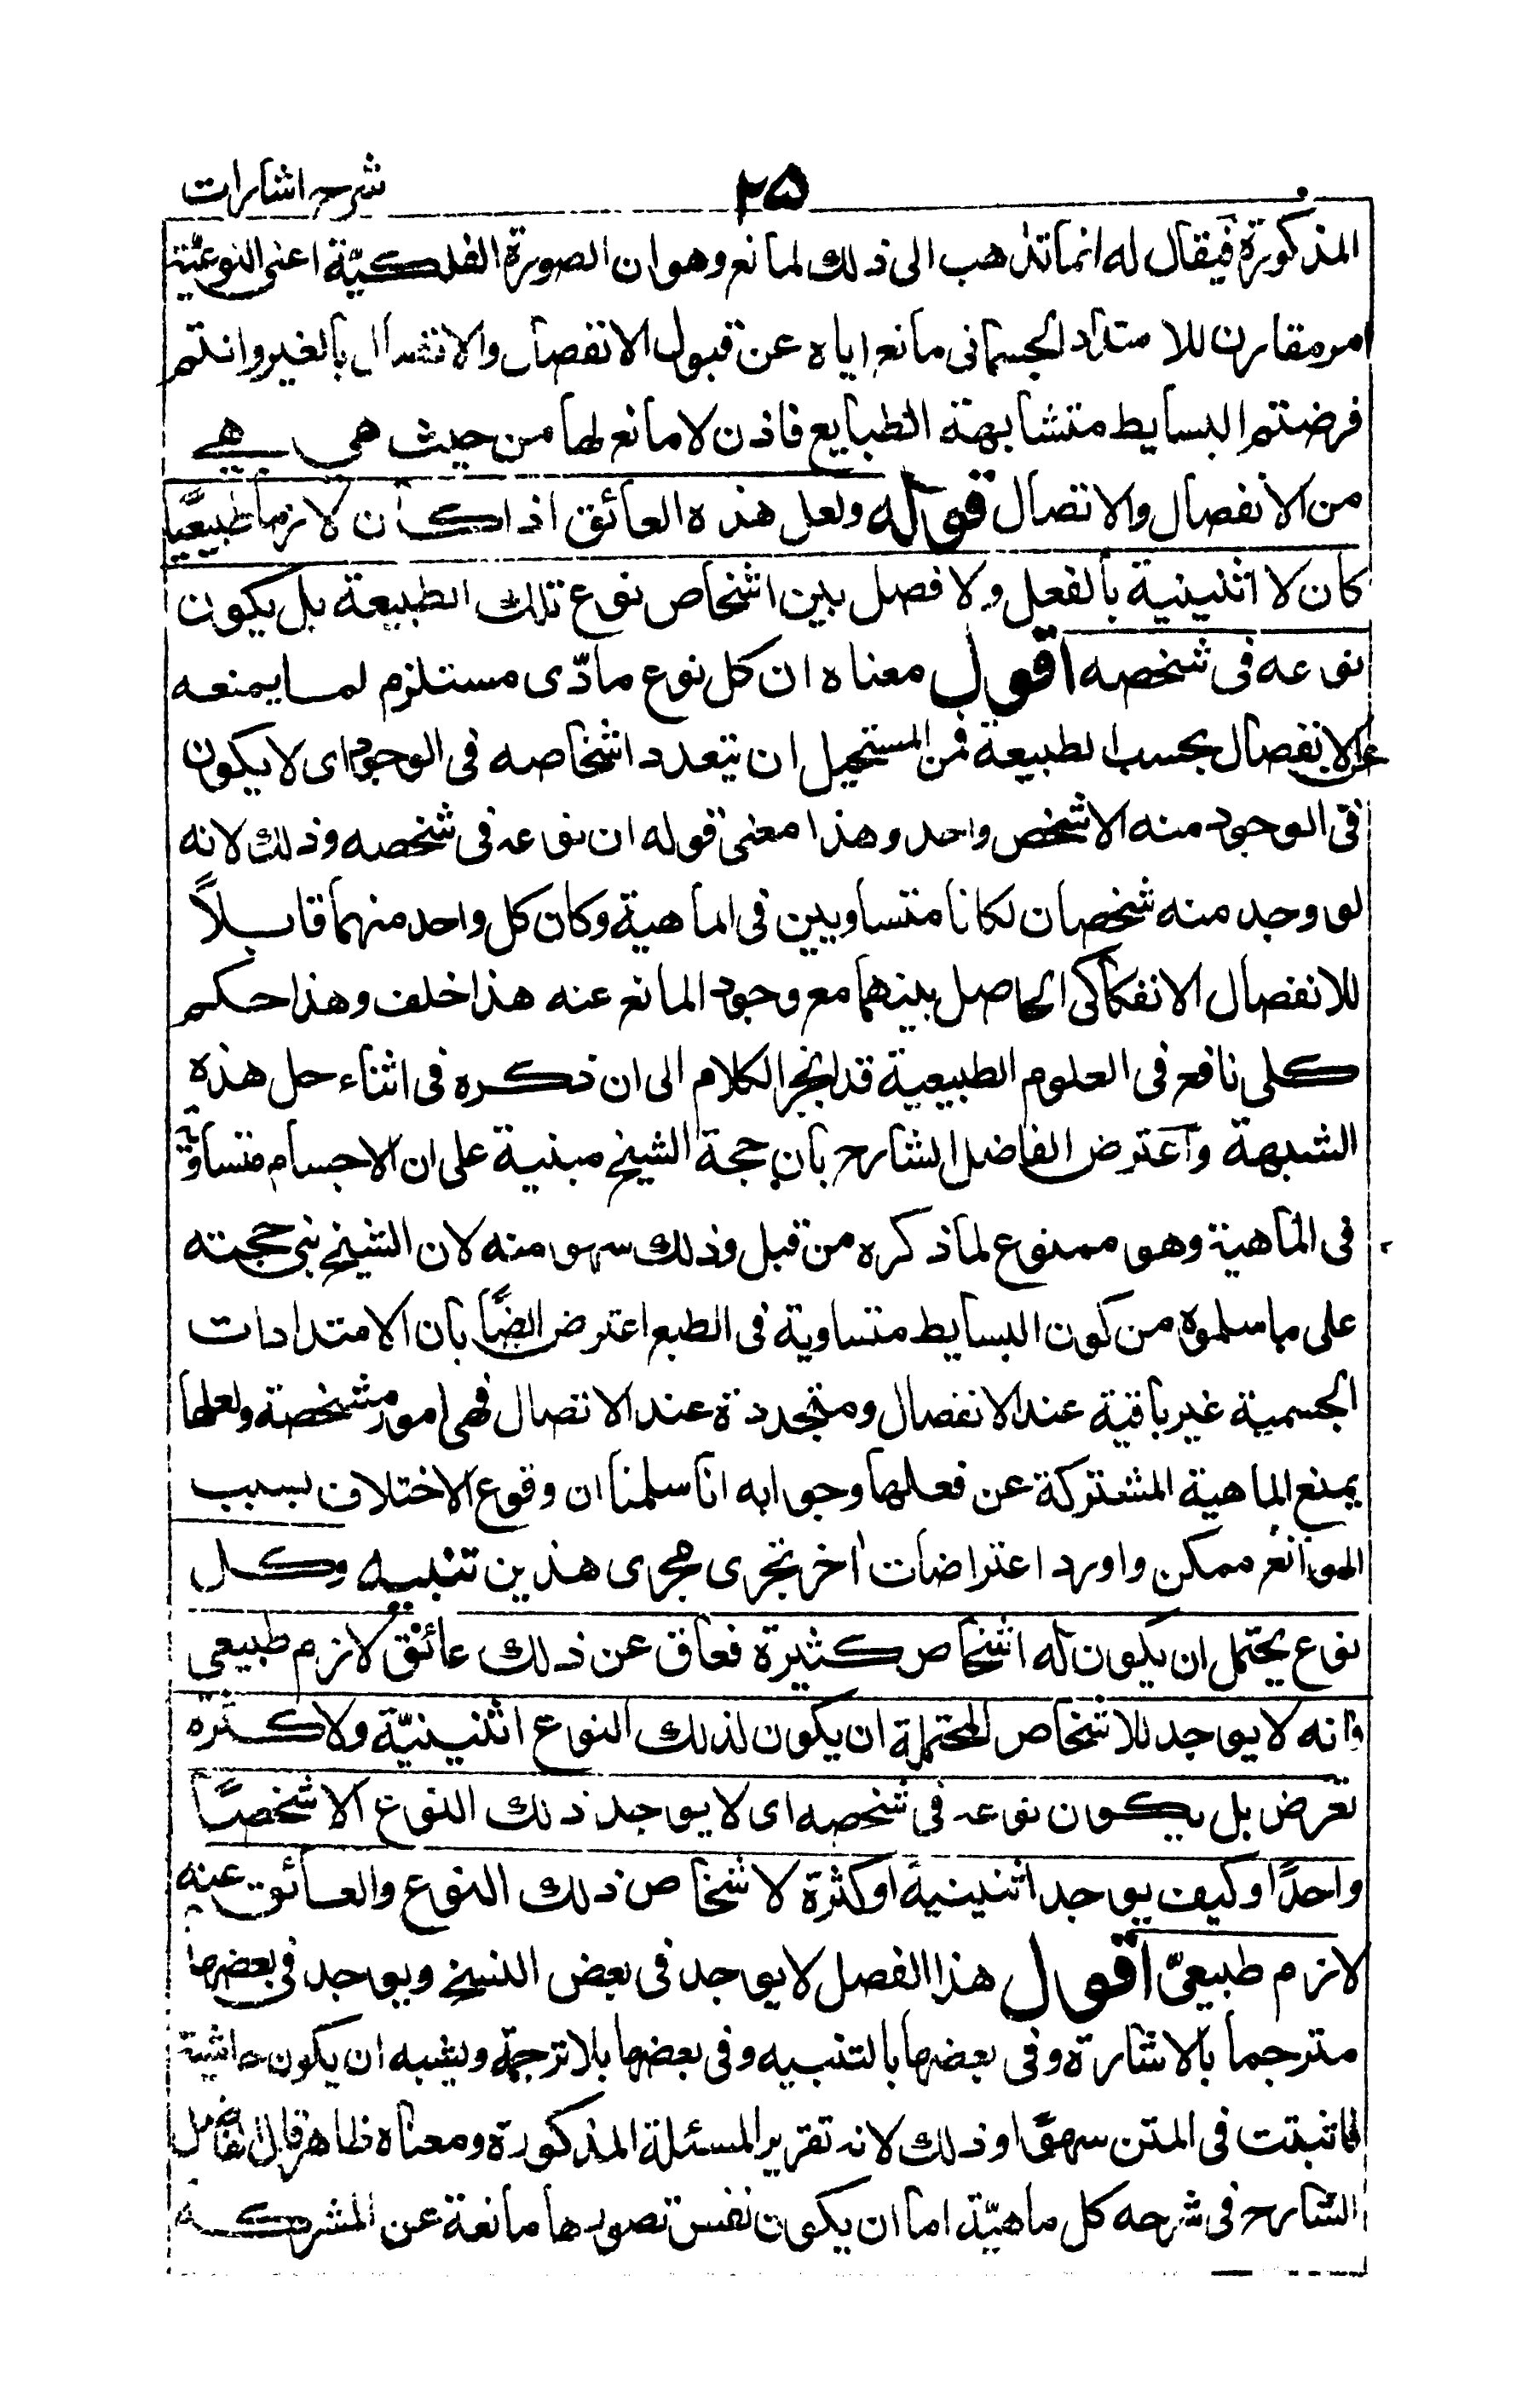 شرح اشارات
٢٥
المذكورة فيقال له انما تذهب الى ذلك لمانع وهو ان الصورة الفلكيّة اعنى النوعيّة
امر مقارن للامتداد الجسمانى مانع اياه عن قبول الانفصال والاتصال بالغير وانتم
فرضتم البسايط متشابهة الطبايع فاذن لا مانع لها من حيث هى هى
من الانفصال والاتصال قوله ولعل هذه العائق اذا كان لازما طبيعيًا
كان لا اثنينية بالفعل ولا فصل بين اشخاص نوع تلك الطبيعة بل يكون
نوعه فى شخصه اقول معناه ان كل نوع مادّى مستلزم لما يمنعه
عن الانفصال بحسب الطبيعة فمن المستحيل ان يتعدد اشخاصه فى الوجود اى لا يكون
فى الوجود منه الا شخص واحد وهذا معنى قوله ان نوعه فى شخصه وذلك لانه
لو وجد منه شخصان لكانا متساويين فى الماهية وكان كل واحد منهما قابلاً
للانفصال الانفكاكى الحاصل بينهما مع وجود المانع عنه هذا خلف وهذا حكم
كلى نافع فى العلوم الطبيعية قد انجر الكلام الى ان ذكره فى اثناء حل هذه
الشبهة واعترض الفاضل الشارح بان حجة الشيخ مبنية على ان الاجسام متساوية
فى الماهية وهو ممنوع لما ذكره من قبل وذلك سهو منه لان الشيخ بنى حجته
على ما سلموه من كون البسايط متساوية فى الطبع اعترض ايضًا بان الامتدادات
الجسمية غير باقية عند الانفصال ومتجددة عند الاتصال فهى امور مشخصة ولعلها
يمنع الماهية المشتركة عن فعلها وجوابه انا سلمنا ان وقوع الاختلاف بسبب
الموانع ممكن واورد اعتراضات اخر تجرى مجرى هذين تنبيه وكل
نوع يحتمل ان يكون له اشخاص كثيرة فعاق عن ذلك عائق لازم طبيعى
وانه لا يوجد للاشخاص المحتملة ان يكون لذلك النوع اثنينيّة ولا كثرة
تعرض بل يكون نوعه فى شخصه اى لا يوجد ذلك النوع الا شخصًا
واحدًا وكيف يوجد اثنينية او كثرة لاشخاص ذلك النوع والعائق عنه
لازم طبيعىّ اقول هذا الفصل لا يوجد فى بعض النسخ ويوجد فى بعضها
مترجما بالاشارة وفى بعضها بالتنبيه وفى بعضها بلا ترجمة ويشبه ان يكون حاشية
فاثبتت فى المتن سهوًا وذلك لانه تقرير المسئلة المذكورة ومعناه ظاهر قال الفاضل
الشارح فى شرحه كل ماهيّة اما ان يكون نفس تصورها مانعة عن الشركة